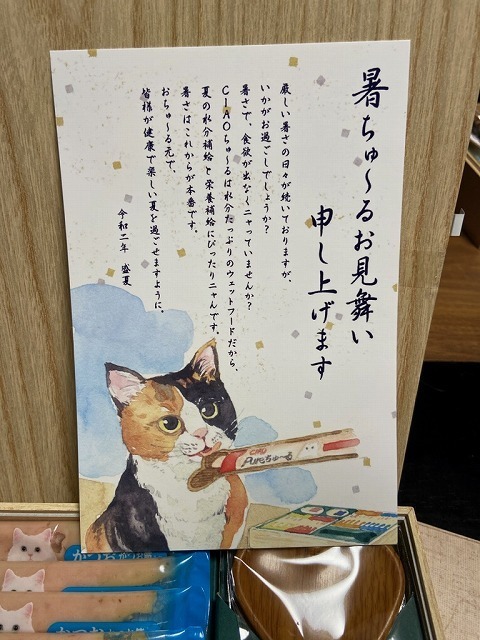 暑ちゅ〜るお見舞い
申し上げます
厳しい暑さの日々が続いておりますが、
いかがお過ごしでしょうか？
暑さで、食欲が出なくニャっていませんか？
CIAOちゅ〜るは水分たっぷりのウェットフードだから、
夏の水分補給と栄養補給にぴったりニャんです。
暑さはこれからが本番です。
おちゅ〜る元で、
皆様が健康で楽しい夏を過ごせますように。
令和二年　盛夏
CIAO
Pureちゅ〜る
かつお
かつお